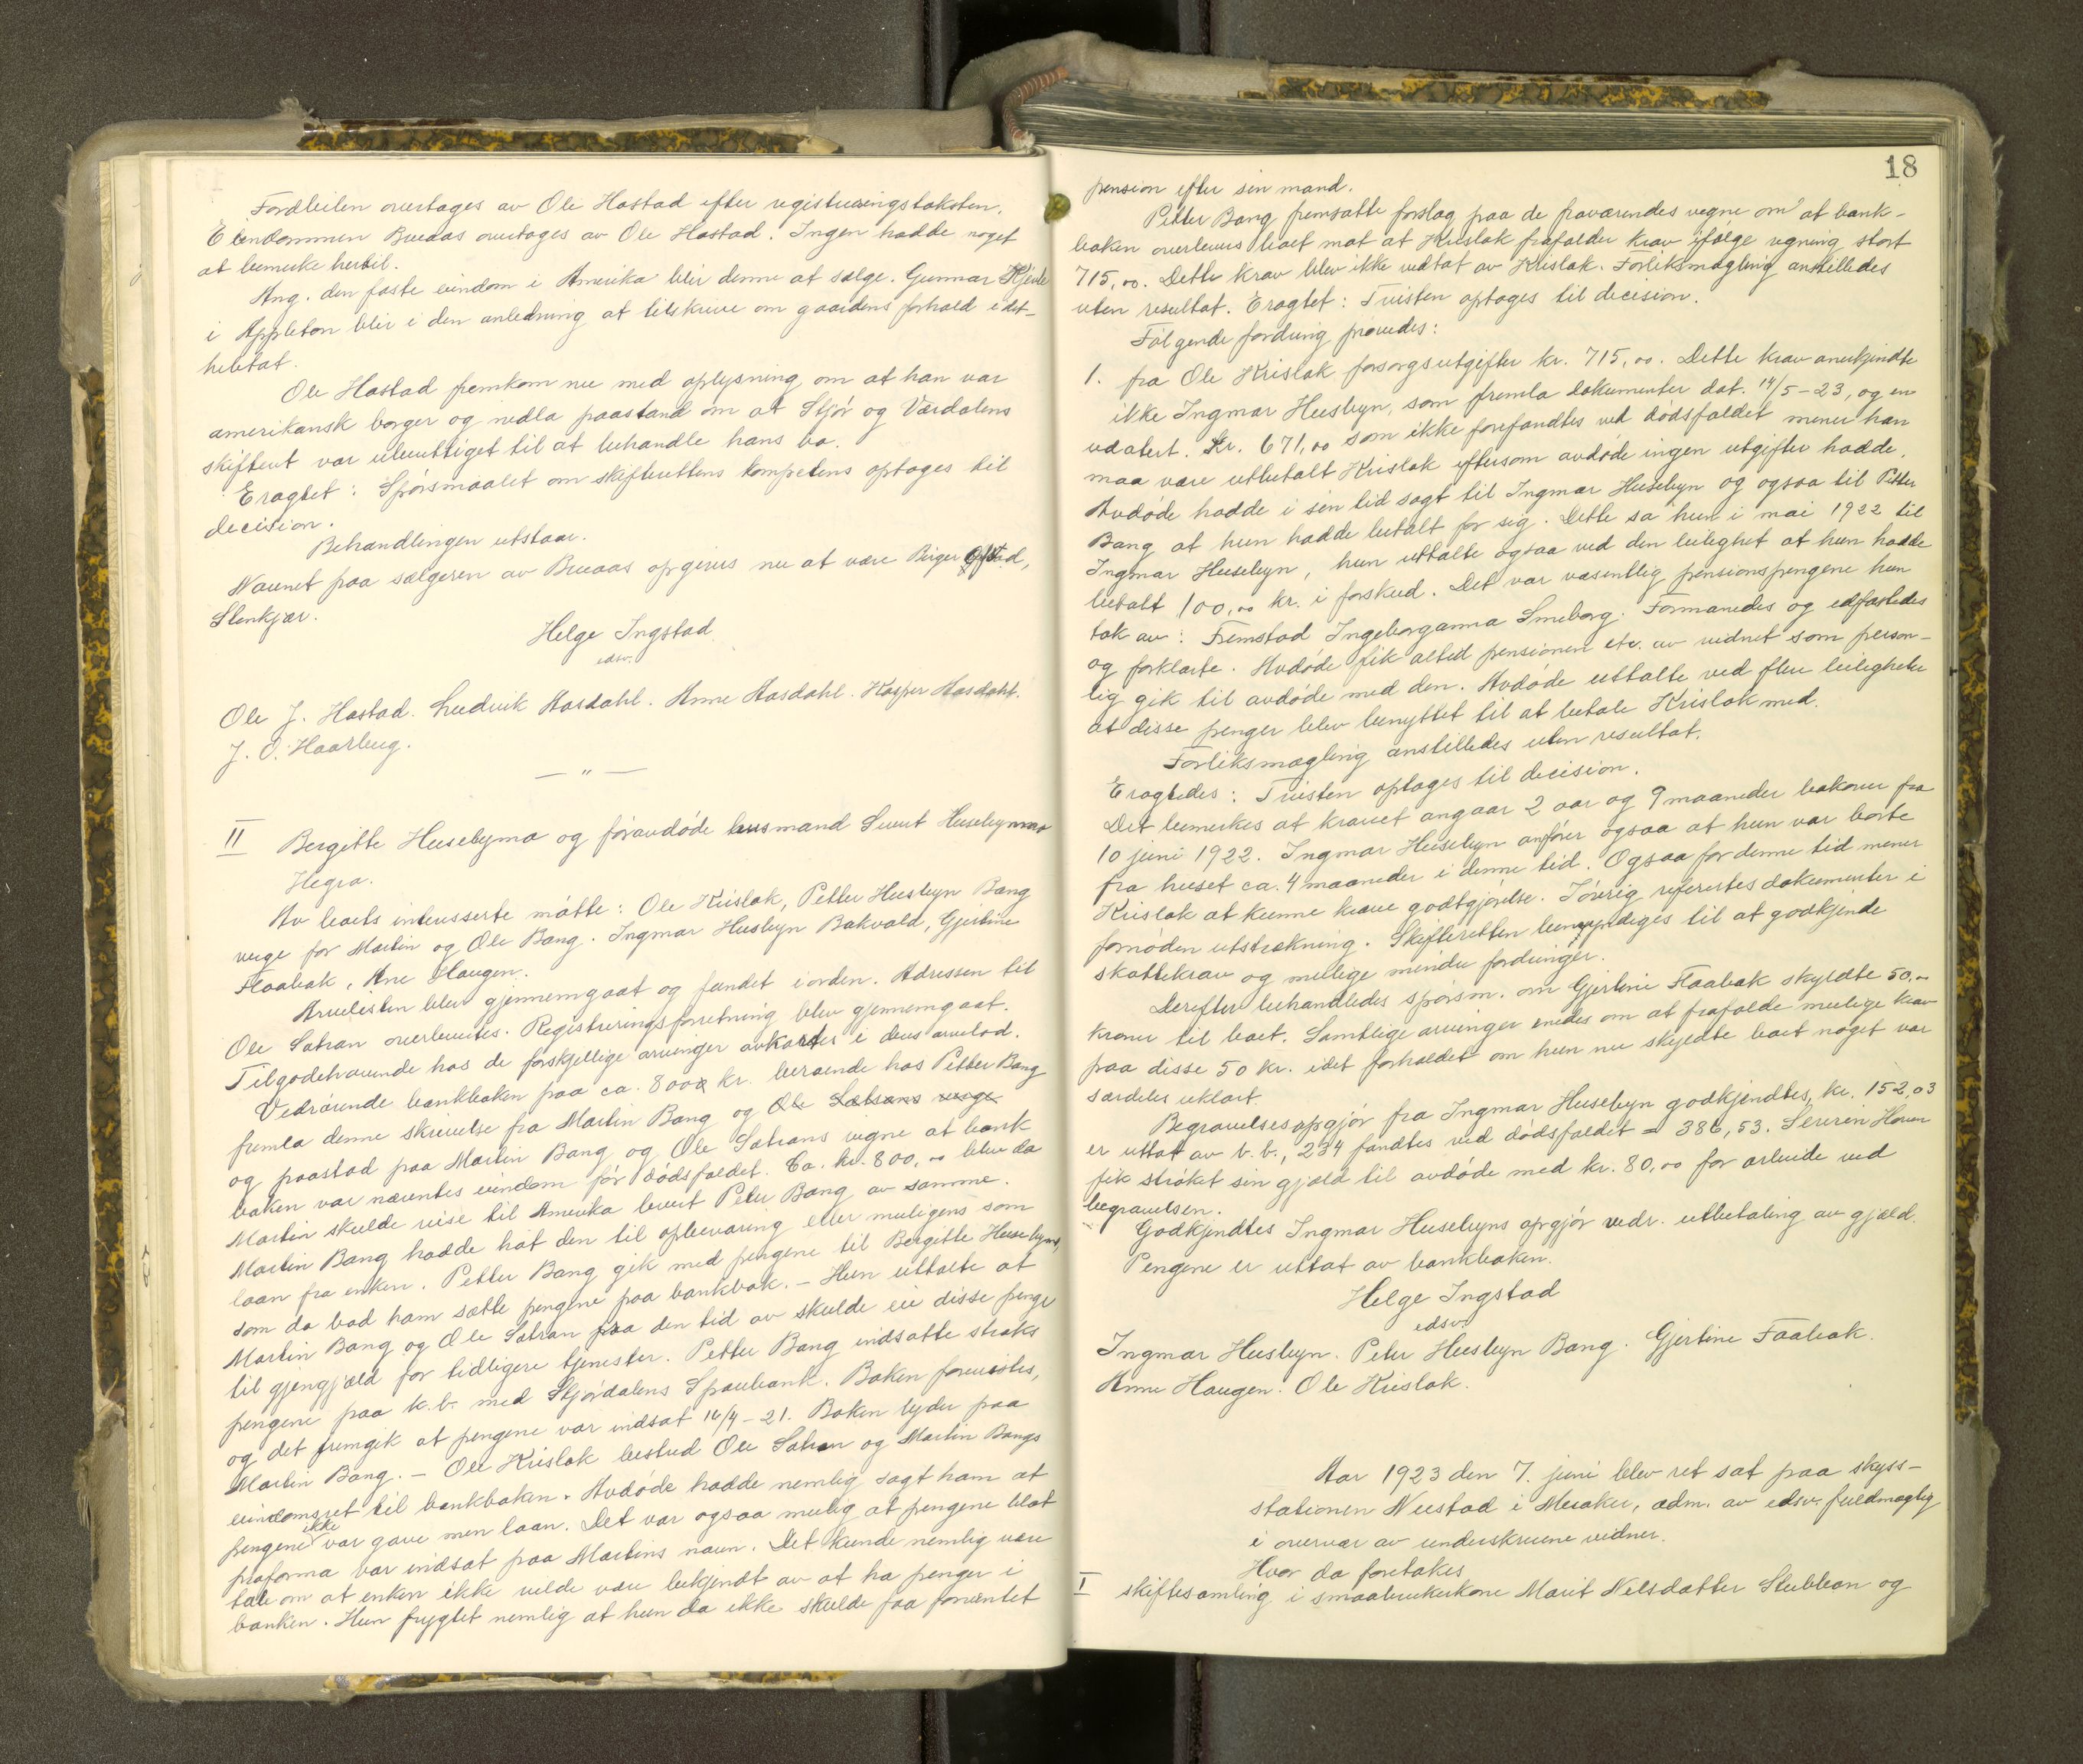 Fordleilen overtages av Ole Hastad efter registreringstaksten.
Eiendommen Bruaas overtages av Ole Hastad. Ingen hadde noget
at bemerke hertil.
Ang. den faste eiendom i Amerika blir denne at sælge. Gunnar
i Appleton blir i den anledning at tilskrive om gaardens forhold i det-
heletat.
Ole Hastad fremkom nu med oplysning om at han var
amerikansk borger og nedla paastand om at Stjør og Værdalens
skifteret var uberettiget til at behandle hans bo.
Eragtet: Spørsmaalet om skifterettens kompetens optages til
decision.
Behandlingen utstaar.
Navnet paa sælgeren av Bruaas opgives nu at være Birger
Stenkjær.
Helge Ingstad
edsv.
Ole J. Hastad. Ludvik Aasdahl. Anne Aasdahl. Kasper Aasdahl.
J. O. Haarberg.
— " —
II Bergitte Husebymo og føravdøde husmand Sivert Husebymo
Hegra.
Av boets interesserte møtte: Ole Krislok, Petter Husbyn Bang
verge for Martin og Ole Bang. Ingmar Husbyn Bakvald, Gjertine
Flaabak, Ane Haugen.
Arvelisten blev gjennemgaat og fundet i orden. Adressen til
Ole Satran overleveres. Registreringsforretning blev gjennemgaat.
Tilgodehavende hos de forskjellige arvinger avkortes i deres arvelod.
Vedrørende bankboken paa ca. 800 kr. beroende hos Petter Bang
fremla denne skrivelse fra Martin Bang og Ole Satrans verge
og paastod paa Martin Bang og Ole Satrans vegne at bank
boken var nævntes eiendom før dødsfaldet. Ca. kr. 800,00 blev da
Martin skulde reise til Amerika levert Peter Bang av samme.
Martin Bang hadde hat den til opbevaring eller muligens som
laan fra enken. Petter Bang gik med pengene til Bergitte Husebymo,
som da bad ham sætte pengene paa bankbok. – Hun uttalte at
Martin Bang og Ole Satran paa den tid av skulde eie disse penge
til gjengjæld for tidligere tjenester. Petter Bang indsatte straks
pengene paa k.b. med Stjørdalens Sparebank. Boken forevistes,
og det fremgik at pengene var indsat 16/4 – 21. Boken lyder paa
Martin Bang. – Ole Krislok bestred Ole Satran og Martin Bangs
eiendomsret til bankboken. Avdøde hadde nemlig sagt ham at
pengene ikke var gave men laan. Det var ogsaa mulig at pengene blot
proforma var indsat paa Martins navn. Det kunde nemlig være
tale om at enken ikke vilde være bekjendt av at ha penger i
banken. Hun frygtet nemlig at hun da ikke skulde faa forventet
18
pension efter sin mand.
Petter Bang fremsatte forslag paa de fraværendes vegne om at bank-
boken overleveres boet mot at Krislok frafalder krav ifølge regning stort
715,00. Dette krav blev ikke vedtat av Krislok. Forliksmægling anstilledes
uten resultat. Eragtet: Tvisten optages til decision.
Følgende fordring prøvedes:
1. fra Ole Krislok forsorgsutgifter kr. 715,00. Dette krav anerkjendte
ikke Ingmar Husbyn, som fremla dokumenter dat. 14/5 – 23, og en
udatert. Kr. 671,00 som ikke forefandtes ved dødsfaldet mener han
maa være utbetalt Krislok eftersom avdøde ingen utgifter hadde.
Avdøde hadde i sin tid sagt til Ingmar Husebyn og ogsaa til Petter
Bang at hun hadde betalt for sig. Dette sa hun i mai 1922 til
Ingmar Husebyn, hun uttalte ogsaa ved den leilighet at hun hadde
betalt 100,00 kr. i forskud. Det var væsentlig pensionspengene hun
tok av: Fremstod Ingeborganna Smeborg. Formanedes og edfæstedes
og forklarte. Avdøde fik altid pensionen etc. av vidnet som person-
lig gik til avdøde med den. Avdøde uttalte ved flere leiligheter
at disse penger blev benyttet til at betale Krislok med.
Forliksmægling anstilledes uten resultat.
Eragtedes: Tvisten optages til decision.
Det bemerkes at kravet angaar 2 aar og 9 maaneder bakover fra
10 juni 1922. Ingmar Husebyn anfører ogsaa at hun var borte
fra huset ca. 4 maaneder i denne tid. Ogsaa for denne tid mener
Krislok at kunne kræve godtgjørelse. Iøvrig referertes dokumenter i
fornøden utstrækning. Skifteretten bemyndiges til at godkjende
skattekrav og mulige mindre fordringer.
Derefter behandledes spørsm. om Gjertine Flaabak skyldte 50,–
kroner til boet. Samtlige arvinger enedes om at frafalde mulige krav
paa disse 50 kr. idet forholdet om hun nu skyldte boet noget var
særdeles uklart.
Begravelsesopgjør fra Ingmar Husebyn godkjendtes, kr. 152,03
er uttat av b.b., 234 fandtes ved dødsfaldet = 386,53. Severin Hoven
fik strøket sin gjæld til avdøde med kr. 80,00 for arbeide ved
begravelsen.
Godkjendtes Ingmar Husebyns opgjør vedr. utbetaling av gjæld.
Pengene er uttat av bankboken.
Helge Ingstad
edsv.
Ingmar Husbyn. Peter Husbyn Bang. Gjertine Faabak.
Anne Haugen. Ole Krislok.
Aar 1923 den 7. juni blev ret sat paa skyss-
stationen Nustad i Meraker, adm. av edsv. fuldmægtig
i overvær av underskrevne vidner.
Hvor da foretokes
I skiftesamling i smaabrukerkone Marit Nilsdatter Stubban og